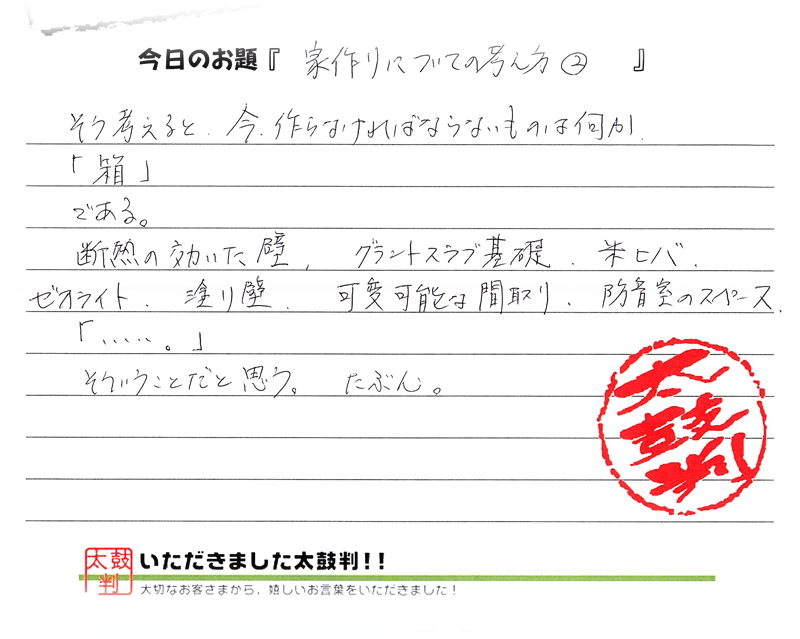 今日のお題『 家作りについての考え方② 』
そう考えると、今、作らなければならないものは何か、
「箱」
である。
断熱の効いた壁、グラントスラブ基礎、米ヒバ、
ゼオライト、塗り壁、可変可能な間取り、防音室のスペース、
「……。」
そういうことだと思う。たぶん。
太鼓判
太鼓判
いただきました太鼓判!!
大切なお客さまから、嬉しいお言葉をいただきました!